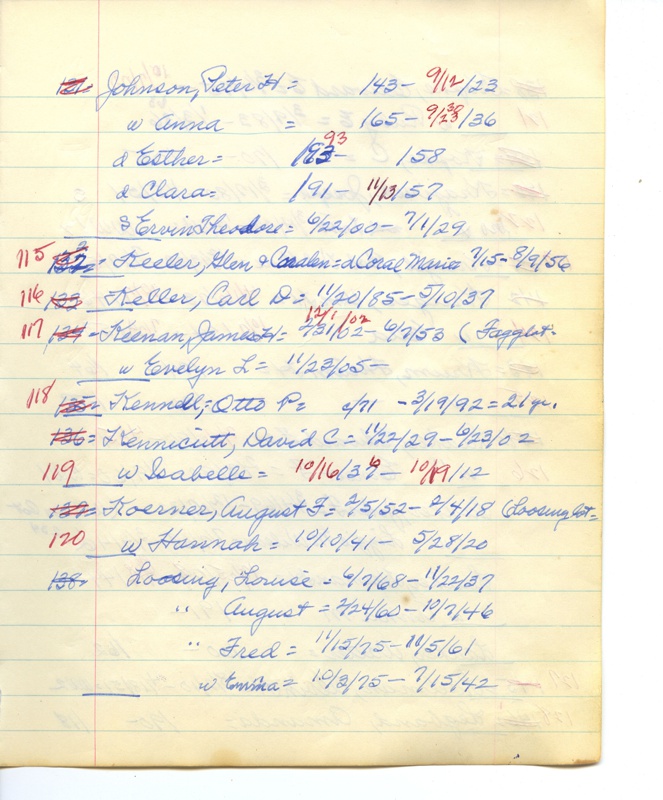 131 Johnson, Peter H = 143 - 9/12/23
w Anna = 165 - 9/23/36
93
d Esther = 193 - 158
d Clara = 191 - 11/13/57
S Ervin Theodore = 6/22/00 - 7/1/29
115 132 = Keeler, Glen & = d Coral Marie 7/15 - 8/9/56
116 133 Keller, Carl D = 11/20/85 - 5/10/37
12/1/02
117 134 = Keenan, James H = 2/21/02 - 6/2/53 (
w Evelyn L = 11/23/05 -
118 135 = Kennell, Otto P = c/71 - 3/19/92 = 21 yr.
136 = Kennicutt, David C = 11/22/29 - 6/23/02
119 w Isabelle = 10/16/36 - 10/19/12
Koerner, August F = 2/5/52 - 2/4/18 (Loosing lot =
120 w Hannah = 10/10/41 - 5/28/20
138 Loosing, Louise = 6/7/68 - 11/22/37
" August = 2/24/60 - 10/7/46
" Fred = 11/15/75 - 11/5/61
w Emma = 10/3/75 - 7/15/42